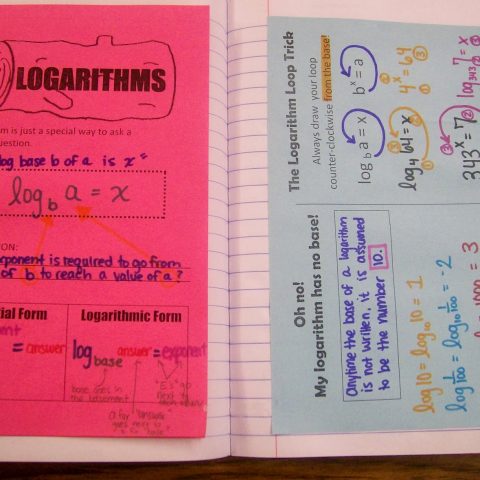 LOGARITHMS
m is just a special way to ask a
uestion.
log base b of a is x"
log b a = x
ON:
xponent is required to go from
of b to reach a value of a?
ial Form
nent
= answer
Logarithmic Form
log base answer = exponent
base goes in
the basement
"E's" go
next to
each other
a for "answer"
goes next to
The Logarithm Loop Trick
Always draw your loop
counter-clockwise from the base!
log b a = x bˣ = a
log₄ 64 = x 4ˣ = 64
① ② ③
343ˣ = 7 log₃₄₃ 7 = x
① ② ③
Oh no!
My logarithm has no base!
Anytime the base of a logarithm
is not written, it is assumed
to be the number 10.
log 10 = log₁₀ 10 = 1
log 1/100 = log₁₀ 1/100 = -2
1000 = 3